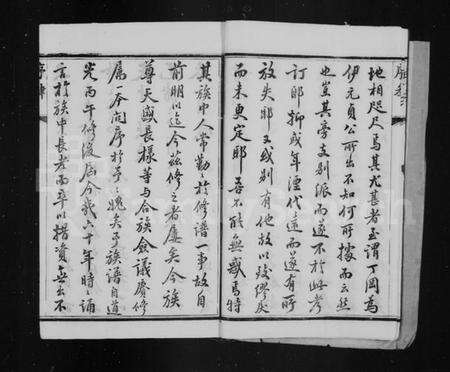 地相咫尺焉其尤甚者至謂丁岡為
伊元貞公所出不知何所據而云然
也豈其旁支別派而遂不於此考
訂耶抑或年湮代遠而遂有所
放失耶又或別有他故以致繆戾
而未更定耶吾不能無感焉特
其族中人常勤於修譜一事故自
前明以迄今茲修之者屢矣今族
尊天盛長樣等與合族僉議賡修
屬一本問序於予予媿矣予族譜自道
光丙午修後屆今幾六十年時時誦
言於族中長者而卒以措資無出不